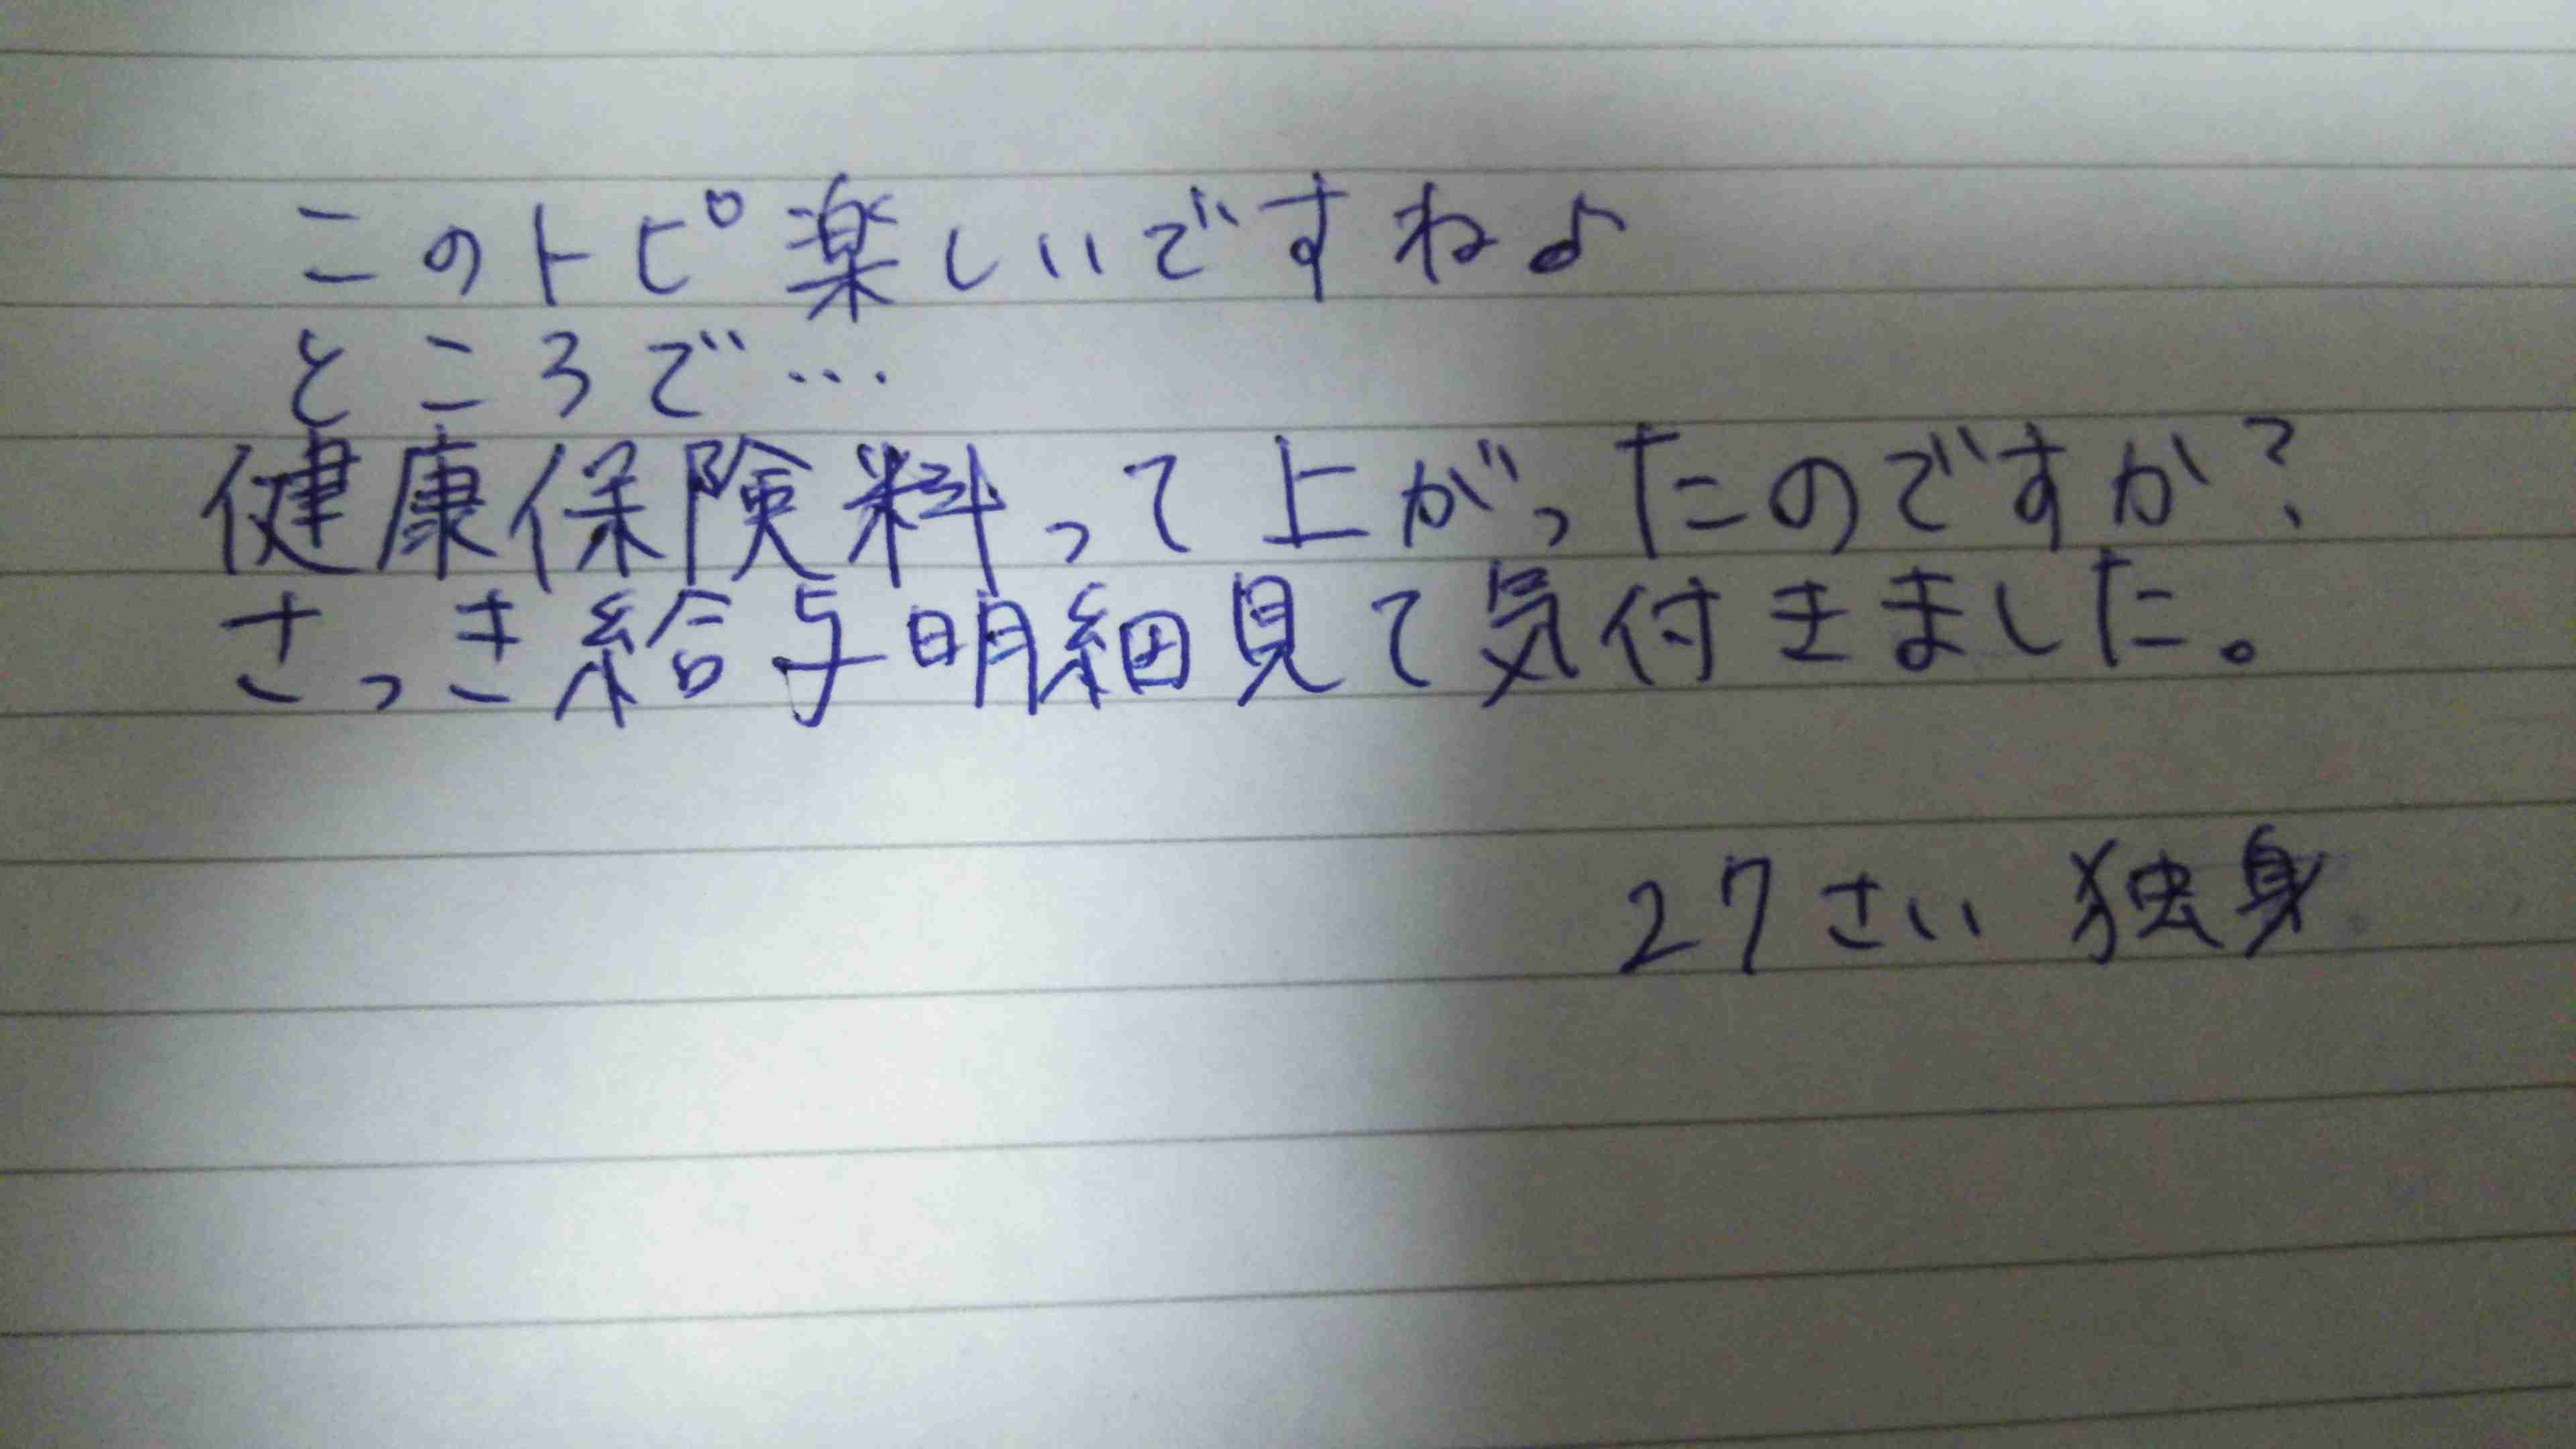 このトピ楽しいですね♪
ところで…
健康保険料って上がったのですか?
さっき給与明細見て気付きました。
27さい 独身